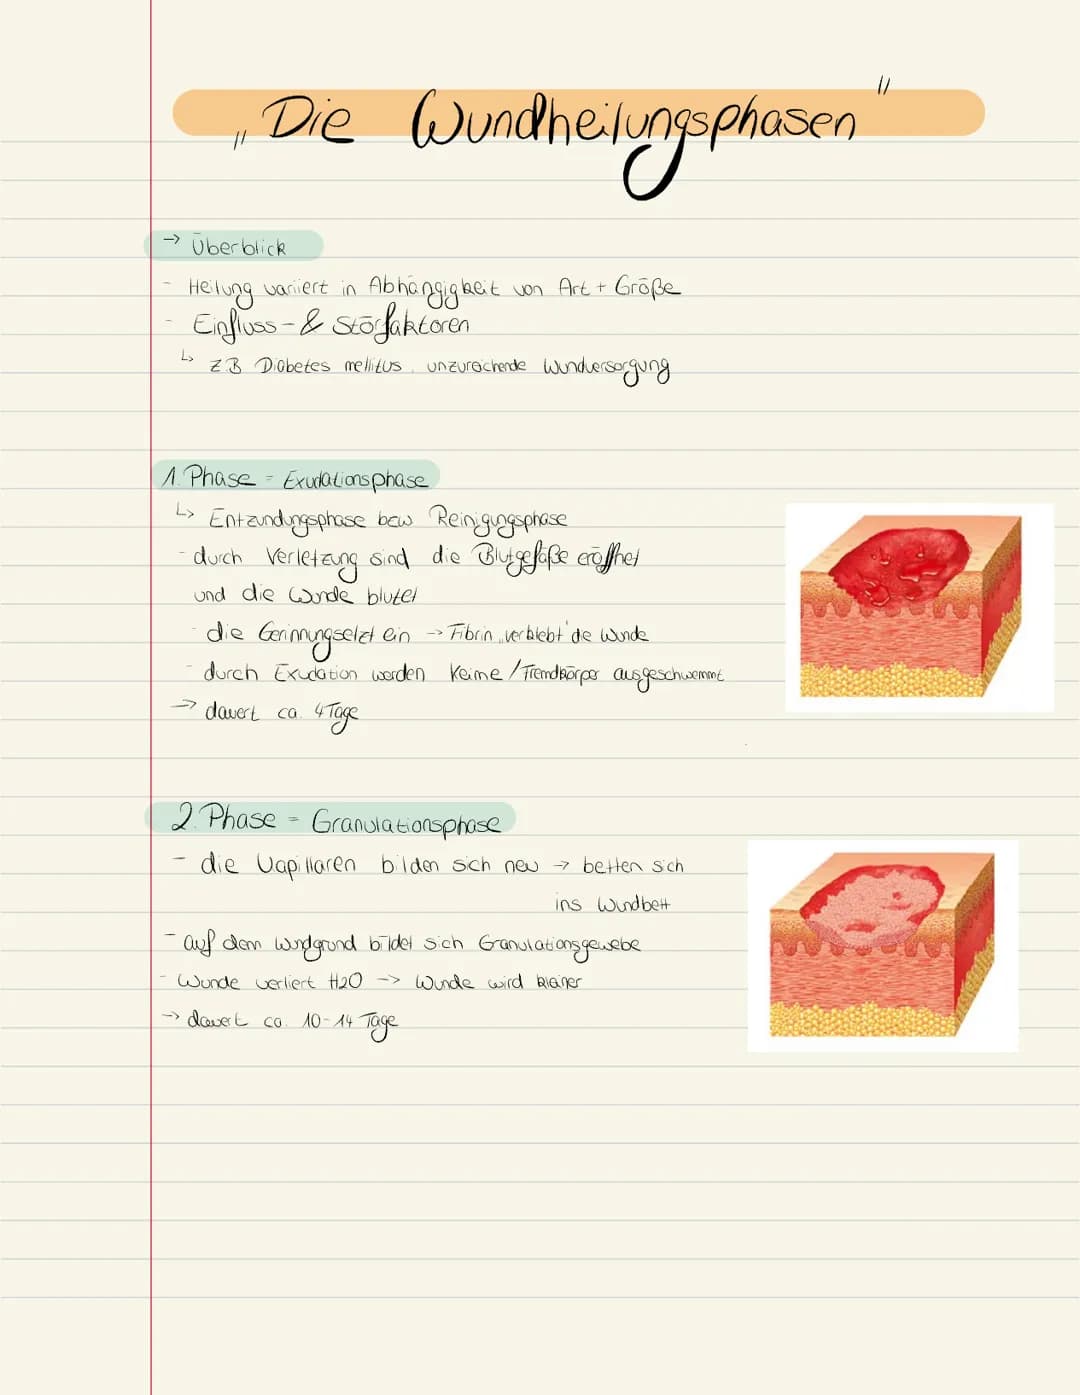 „Die Wundheilungsphasen"
→ Überblick
- Heilung variiert in Abhängigkeit von Art + Größe
- Einfluss- & Störfaktoren
↳ z.B Diabetes mellitus, unzureichende Wundversorgung
1. Phase = Exudationsphase
↳ Entzündungsphase bzw Reinigungsphase
- durch Verletzung sind die Blutgefäße eröffnet
und die Wunde blutet
- die Gerinnung setzt ein → Fibrin „verklebt" die Wunde
- durch Exudation werden Keime / Fremdkörper ausgeschwemmt
→ dauert ca. 4 Tage
2. Phase = Granulationsphase
- die Kapillaren bilden sich neu → betten sich
ins Wundbett
- auf dem Wundgrund bildet sich Granulationsgewebe
- Wunde verliert H2O → Wunde wird kleiner
→ dauert ca. 10-14 Tage